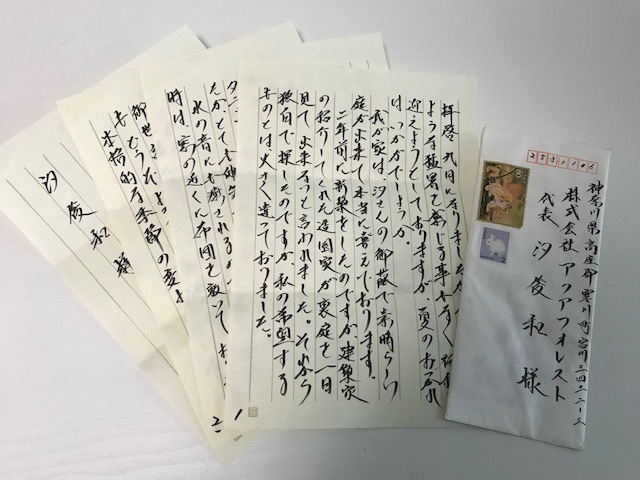 拝啓 九月になりましたが
ような猛暑を感じる事もなく
迎えようとしておりますが、夏のお疲れ
はいかがでしょうか。
我が家は、汐さんの御蔭で素晴らしい
庭が出来て本当に喜んでおります。
二年前に新築をしたのですが、建築家
の紹介してくれた造園家が裏庭を一目
見て、出来ないと言われました。それから
独自で探したのですが、私の希望する
ものとは大きく違っておりました。
1
水の音に癒されるの
時は、窓の近くに布団を敷いて
2
御世
どうぞ
本格的な季節の変
汐俊和様
2530106
神奈川県高座郡寒川町宮川
株式会社アクアフォレスト
代表 汐俊和様